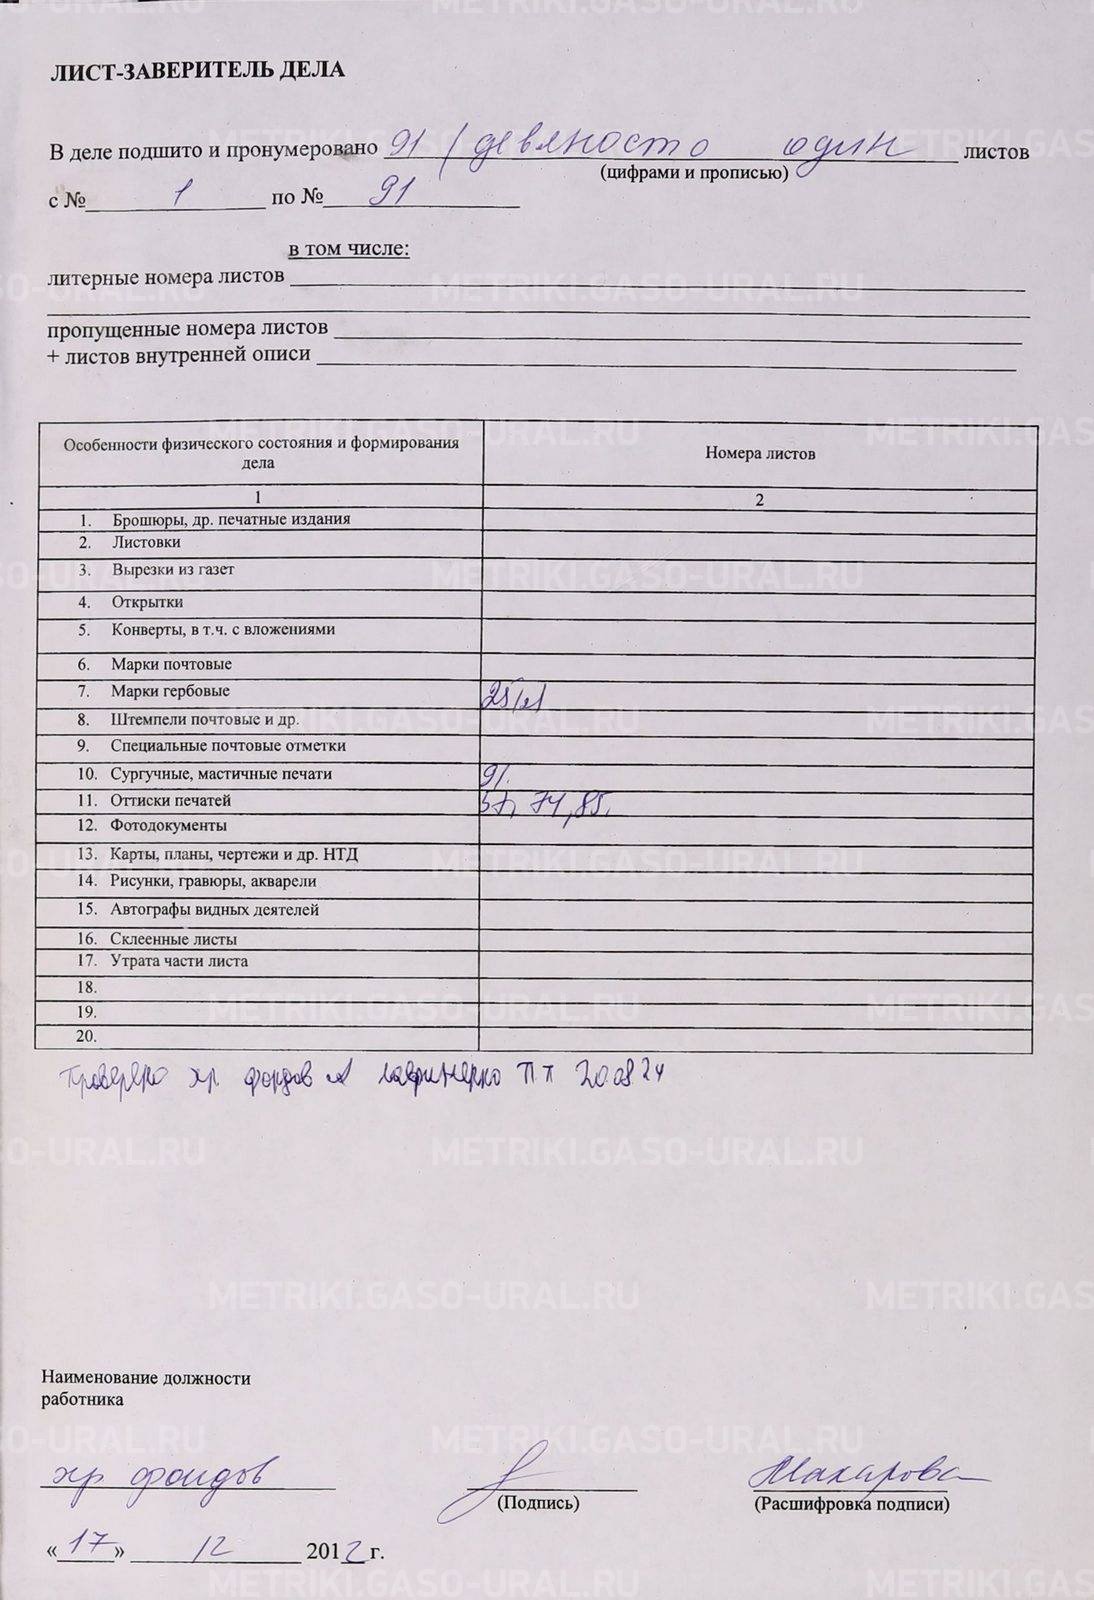 ЛИСТ-ЗАВЕРИТЕЛЬ ДЕЛА
В деле подшито и пронумеровано 91 (девяносто один листов
(цифрами и прописью)
с № 1 по № 91
в том числе:
литерные номера листов
пропущенные номера листов
+ листов внутренней описи
Особенности физического состояния и формирования дела Номера листов
1 2
1. Брошюры, др. печатные издания
2. Листовки
3. Вырезки из газет
4. Открытки
5. Конверты, в т.ч. с вложениями
6. Марки почтовые
7. Марки гербовые
8. Штемпели почтовые и др.
9. Специальные почтовые отметки
10. Сургучные, мастичные печати 91.
11. Оттиски печатей 57, 74, 85.
12. Фотодокументы
13. Карты, планы, чертежи и др. НТД
14. Рисунки, гравюры, акварели
15. Автографы видных деятелей
16. Склеенные листы
17. Утрата части листа
18.
19.
20.
Проверено хр. фондов Лавриненко 20 08 24
Наименование должности
работника
хр фондов Макарова
(Подпись) (Расшифровка подписи)
«17» 12 2012 г.
METRIKI.GASO-URAL.RU